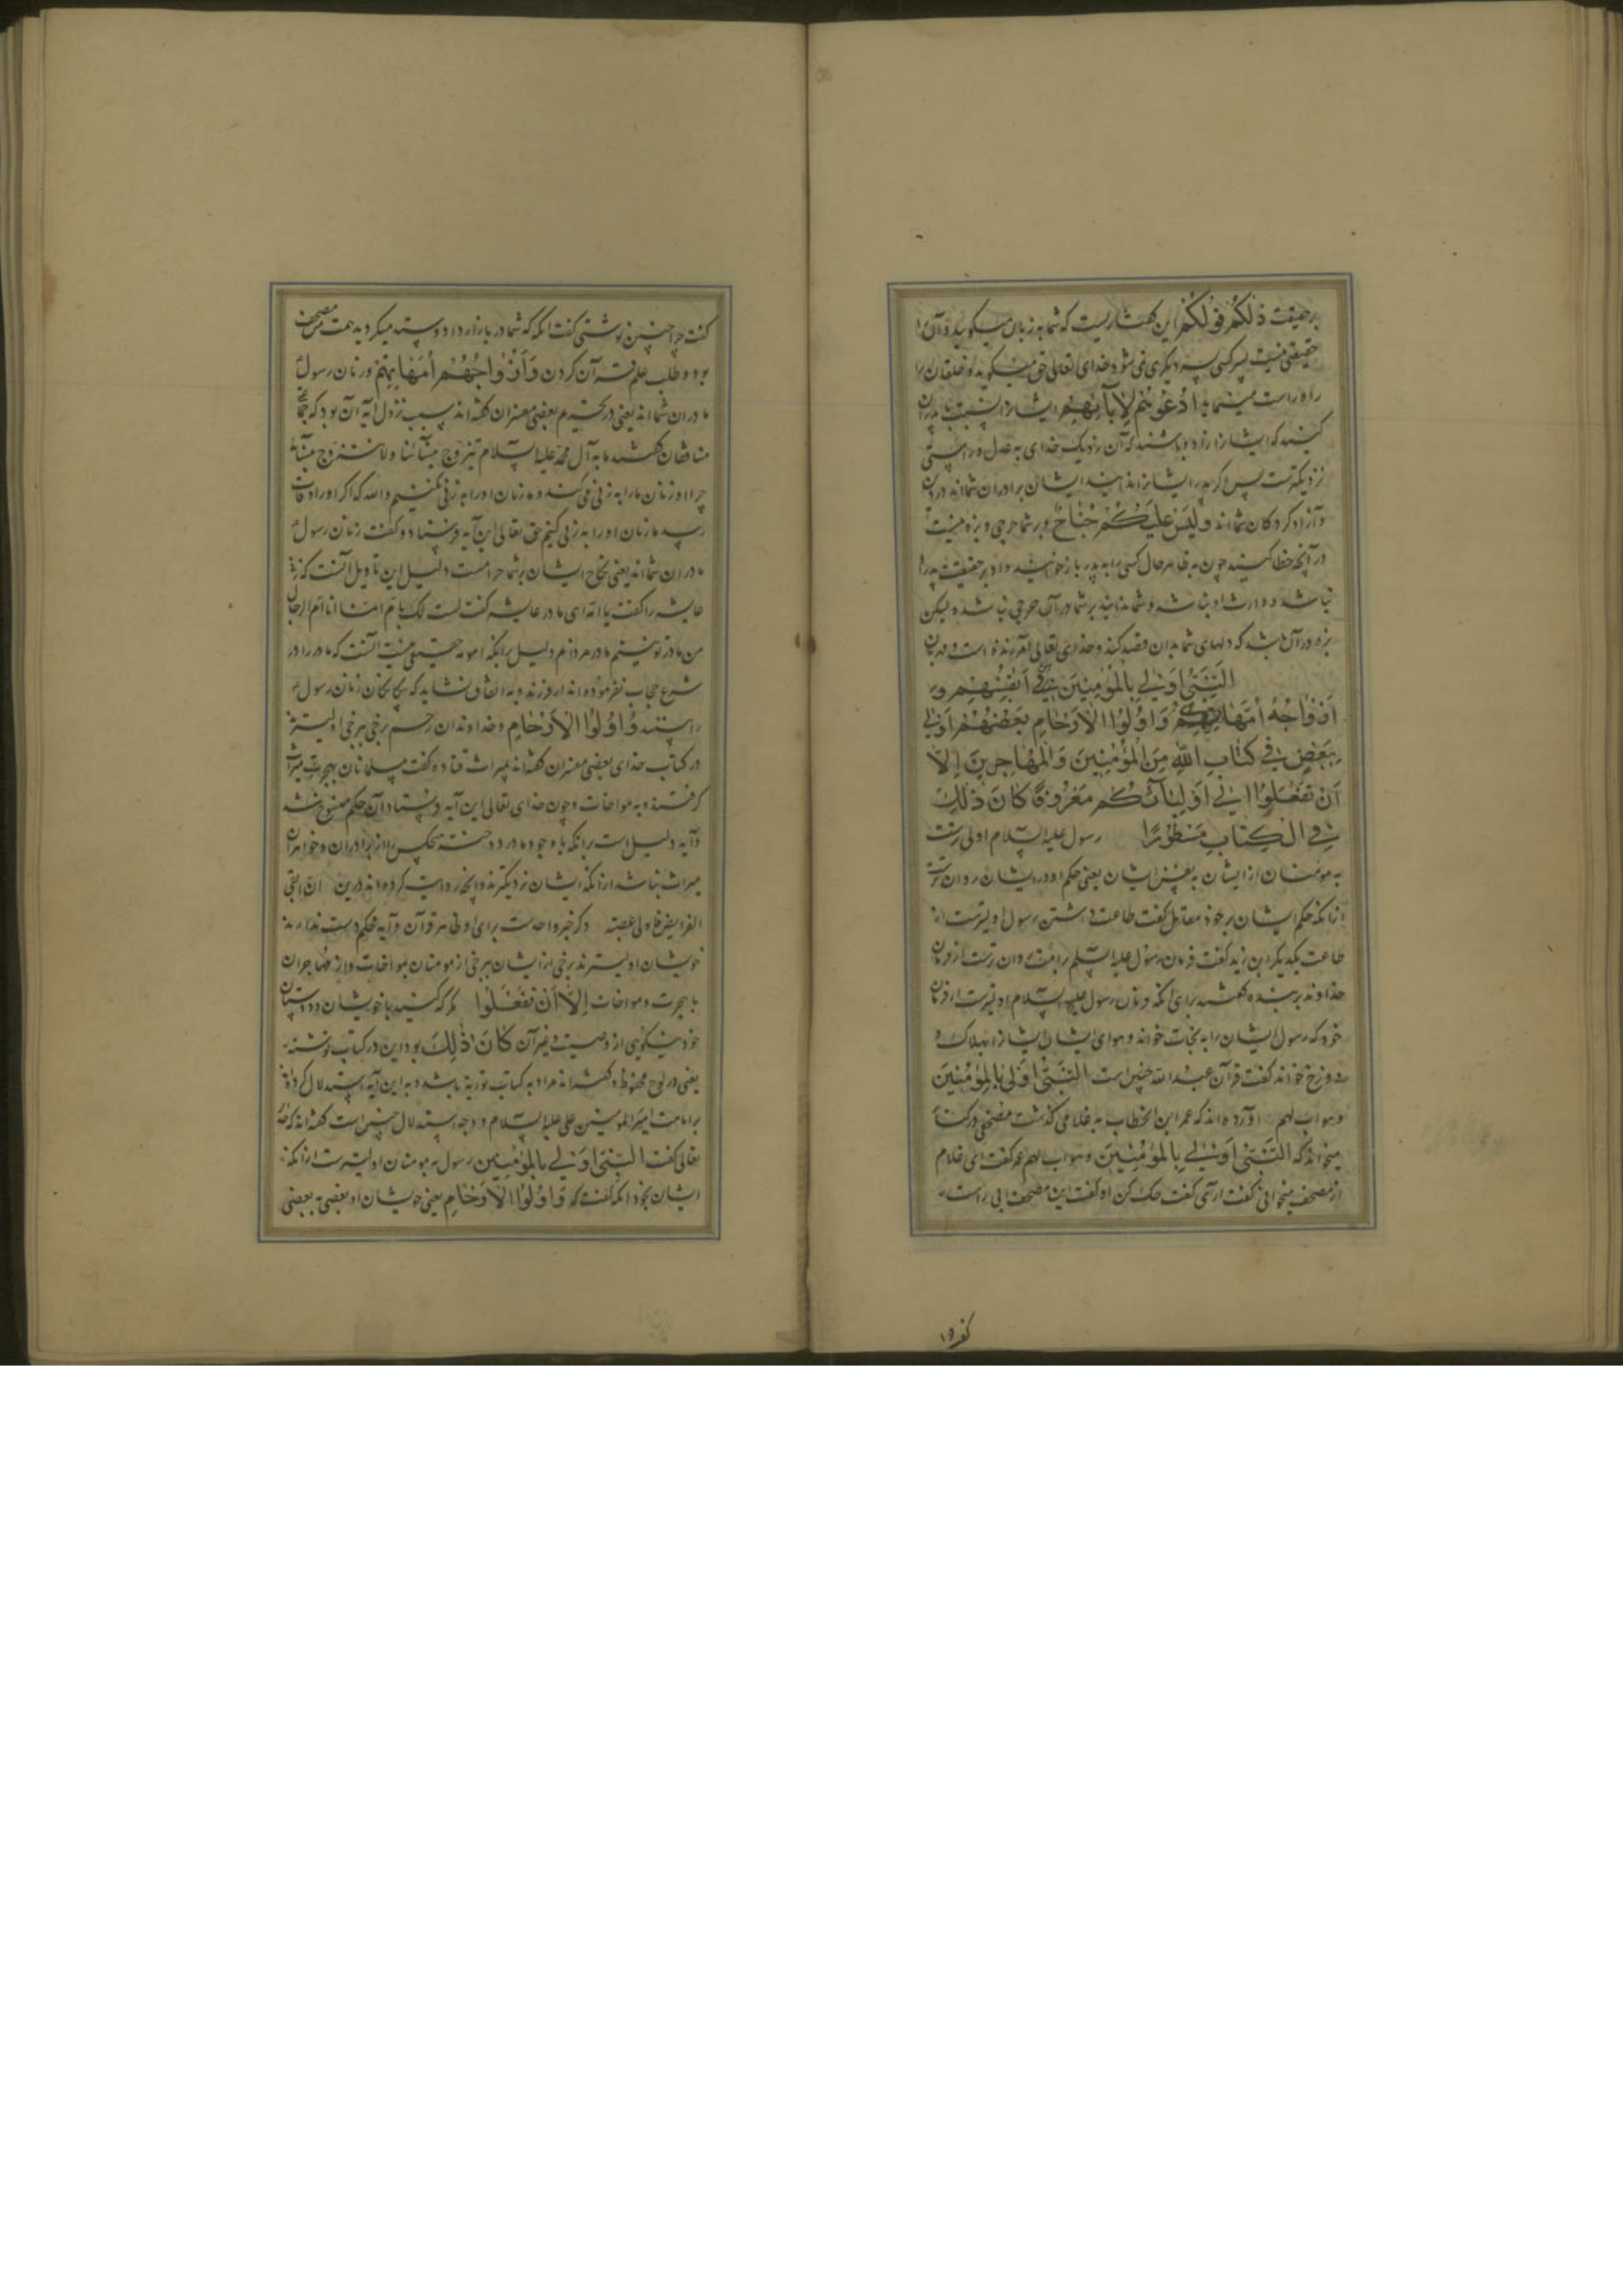 بر حقیقت ذلکم قولکم این گفتاریست که شما به زبان میگوئید و آن را
حقیقتی نیست پسر کسی پسر دیگری نمی شود و خدای تعالی حق میگوید و خلقان را
راه راست مینماید ادعوهم لآبائهم ایشان را نسبت با پدران
کنید که ایشان را زاده باشند که آن نزدیک خدای به عدل و راستی
نزدیکترست پس اگر پدر ایشان را ندانید ایشان برادران شمااند در دین
و آزاد کردکان شمااند ولیس علیکم جناح و بر شما حرجی و بزه نیست
در آنچه خطا کنید چون به ظاهر حال کسی را به پدر باز خوانید و او بر حقیقت پدر او
نباشد و وارث او نباشد و شما ندانید بر شما در آن حرجی نباشد ولیکن
بزه در آن باشد که دلهای شما بدان قصد کند و خدای تعالی آمرزنده است و مهربان
النبی اولی بالمؤمنین من انفسهم و
ازواجه امهاتهم و اولوا الارحام بعضهم اولی
ببعض فی کتاب الله من المؤمنین والمهاجرین الا
ان تفعلوا الی اولیائکم معروفا کان ذلک
فی الکتاب مسطورا رسول علیه السلام اولی ترست
به مومنان از ایشان به نفس ایشان یعنی حکم او در ایشان روان ترست
ازانکه حکم ایشان بر خود مقاتل گفت طاعت داشتن رسول اولیترست از
طاعت یکدیگر ابن زید گفت فرمان رسول علیه السلم بر امت روان ترست از فرمان
خداوند بر بنده گفتند برای آنکه فرمان رسول علیه السلام اولیترست از فرمان
خود که رسول ایشان را به نجات خواند و هوای ایشان ایشان را بهلاک و
دوزخ خواند گفت قرآن عبد الله چنین است النبی اولی بالمؤمنین
و هو اب لهم آورده اند که عمر ابن الخطاب به غلامی گذشت مصحفی در کنار
میخواند که النبی اولی بالمؤمنین و هو اب لهم عمر گفت ای غلام
از مصحف میخوانی گفت آری گفت حک کن او گفت این مصحف ابی راست
گفت چرا چنین نوشتی گفت انکه که شما در بازار داد و ستد میکردید همت من مصحف
بود و طلب علم قرآن کردن و ازواجهم امهاتهم و زنان رسول
مادران شمااند یعنی در تحریم بعضی مفسران گفته اند سبب نزول آیه آن بود که جماعتی
منافقان گفتند ما به آل محمد علیه السلام تتزوج نسائنا ولا نتزوج نسائه
چرا او زنان ما را به زنی می کند و ما زنان او را به زنی نکنیم والله که اگر او را وفات
رسد ما زنان او را به زنی کنیم حق تعالی این آیه فرستاد و گفت زنان رسول
مادران شمااند یعنی نکاح ایشان بر شما حرامست دلیل این تاویل آنست که زنی
عایشه را گفت یا امه ای مادر عایشه گفت لست لک بام انما انا ام الرجال
من مادر تو نیستم مادر مردانم دلیل برانکه امومه حقیقی نیست آنست که مادر را در
شرع حجاب نفرموده اند از فرزند و به اتفاق نشاید که بیگانگان زنان رسول
را بینند و اولوا الارحام و خداوندان رحم برخی ببرخی اولیترند
در کتاب خدای بعضی مفسران گفته اند میراث قتاده گفت مسلمانان بهجرت میراث
گرفتند و به مواخات و چون خدای تعالی این آیه فرستاد آن حکم منسوخ شد
و آیه دلیل است برانکه با وجود مادر و دختر هیچکس را از برادران و خواهران
میراث نباشد ازانکه ایشان نزدیکترند و آنچه روایت کرده اند درین ان ابقی
الفرایض فلاولی عصبة ذکر خبر واحدست برای او ظاهر قرآن و آیه محکم دست ندارند
خویشان اولیترند برخی از ایشان ببرخی از مومنان بمواخات و از مهاجران
با هجرت و مواخات الا ان تفعلوا مگر که کنید با خویشان و دوستان
خود نیکویی از وصیت و غیر آن کان ذلک بود این در کتاب نوشته
یعنی در لوح محفوظ و گفته اند مراد به کتاب توریة باشد و به این آیه استدلال کرده اند
بر امامت امیر المومنین علی علیه السلام و وجه استدلال چنین است گفته اند که خدای
تعالی گفت النبی اولی بالمؤمنین رسول به مومنان اولیترست ازانکه
ایشان بخود انکه گفت که و اولوا الارحام یعنی خویشان او بعضی به بعضی